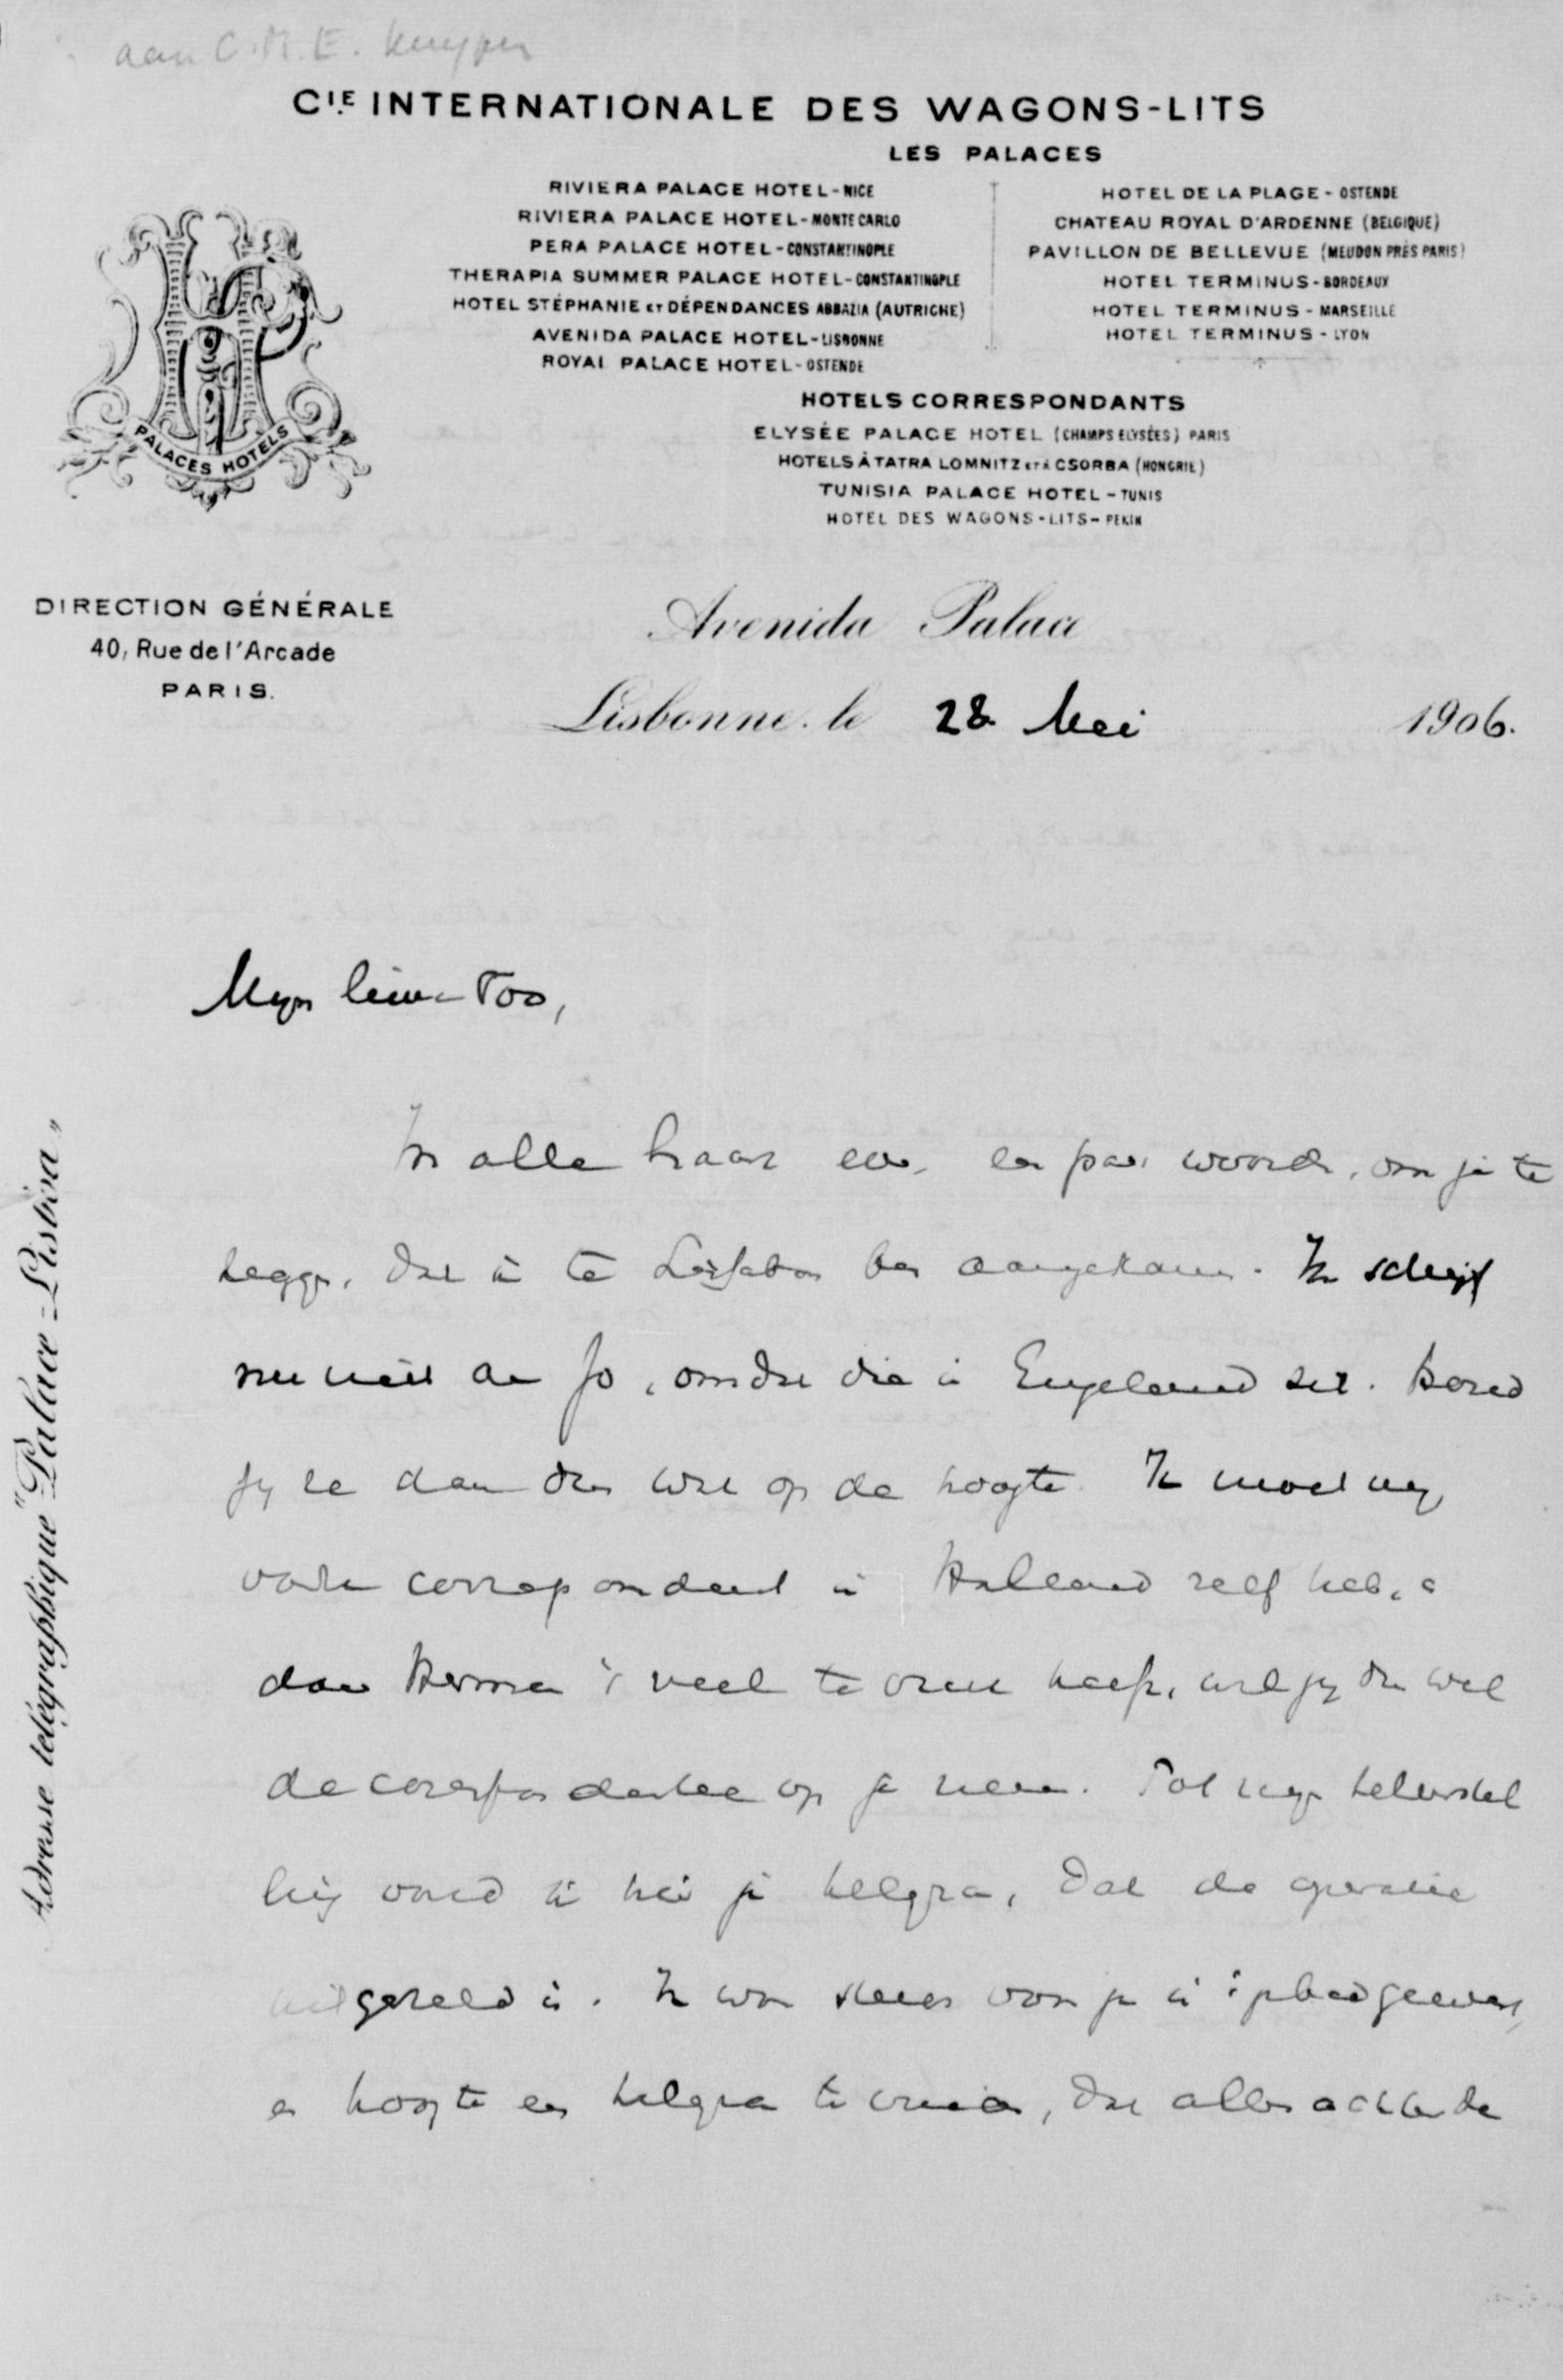 aan C.M.E. Kuyper
CIE INTERNATIONALE DES WAGONS-LITS
LES PALACES
RIVIERA PALACE HOTEL - NICE
RIVIERA PALACE HOTEL - MONTE CARLO
PERA PALACE HOTEL - CONSTANTINOPLE
THERAPIA SUMMER PALACE HOTEL - CONSTANTINOPLE
HOTEL STÉPHANIE ET DÉPENDANCES ABBAZIA (AUTRICHE)
AVENIDA PALACE HOTEL - LISBONNE
ROYAL PALACE HOTEL - OSTENDE
HOTEL DE LA PLAGE - OSTENDE
CHATEAU ROYAL D'ARDENNE (BELGIQUE)
PAVILLON DE BELLEVUE (MEUDON PRÈS PARIS)
HOTEL TERMINUS - BORDEAUX
HOTEL TERMINUS - MARSEILLE
HOTEL TERMINUS - LYON
HOTELS CORRESPONDANTS
ELYSÉE PALACE HOTEL (CHAMPS ELYSÉES) PARIS
HOTELS À TATRA LOMNITZ ET À CSORBA (HONGRIE)
TUNISIA PALACE HOTEL - TUNIS
HOTEL DES WAGONS-LITS - PEKIN
PALACES HOTELS
DIRECTION GÉNÉRALE
40, Rue de l'Arcade
PARIS.
Avenida Palace
Lisbonne. le 28 Mei 1906.
Adresse télégraphique "Palace-Lisboa"
Mijn lieve Too,
In alle haast een paar woorden, om je te
zeggen, dat ik te Lissabon ben aangekomen. Ik schrijf
nu niet aan Jo, omdat die in Engeland zit. Houd
jij ze dan dus wat op de hoogte. Ik moet mijn
vaste correspondent in Holland zelf hebben, en
daar Herman 't veel te druk heeft, wil jij dus wel
de correspondentie op je nemen. Tot mijn
vond ik hier je telegram, dat de operatie
uitgesteld is. Ik was steeds voor je in geweest,
en hoopte een telegram te vinden, dat alles achter de